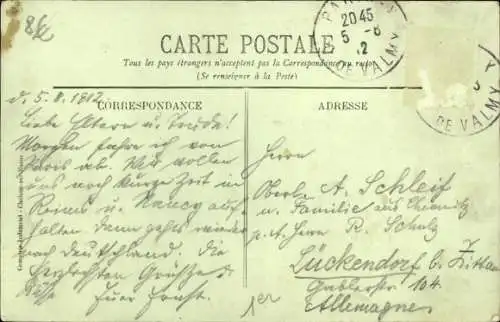 86
PARIS
20 45
5 - 8
12
DE VALMY
CARTE POSTALE
Tous les pays étrangers n'acceptent pas la Correspondance au recto
(Se renseigner à la Poste)
DE VALMY
d. 5. 8. 1912.
CORRESPONDANCE
ADRESSE
Liebe Eltern u. Trude!
Morgen fahre ich von
Paris ab. Wir wollen
uns noch kurze Zeit in
Reims u. Nancy auf-
halten dann gehts wieder
nach Deutschland. Die
herzlichsten Grüsse u.
Küsse Euer Ernst.
Herrn
A. Schleif
u. Familie aus Chemnitz
p. A. Herrn R. Schulz
Lückendorf b. Zittau
104
Allemagne